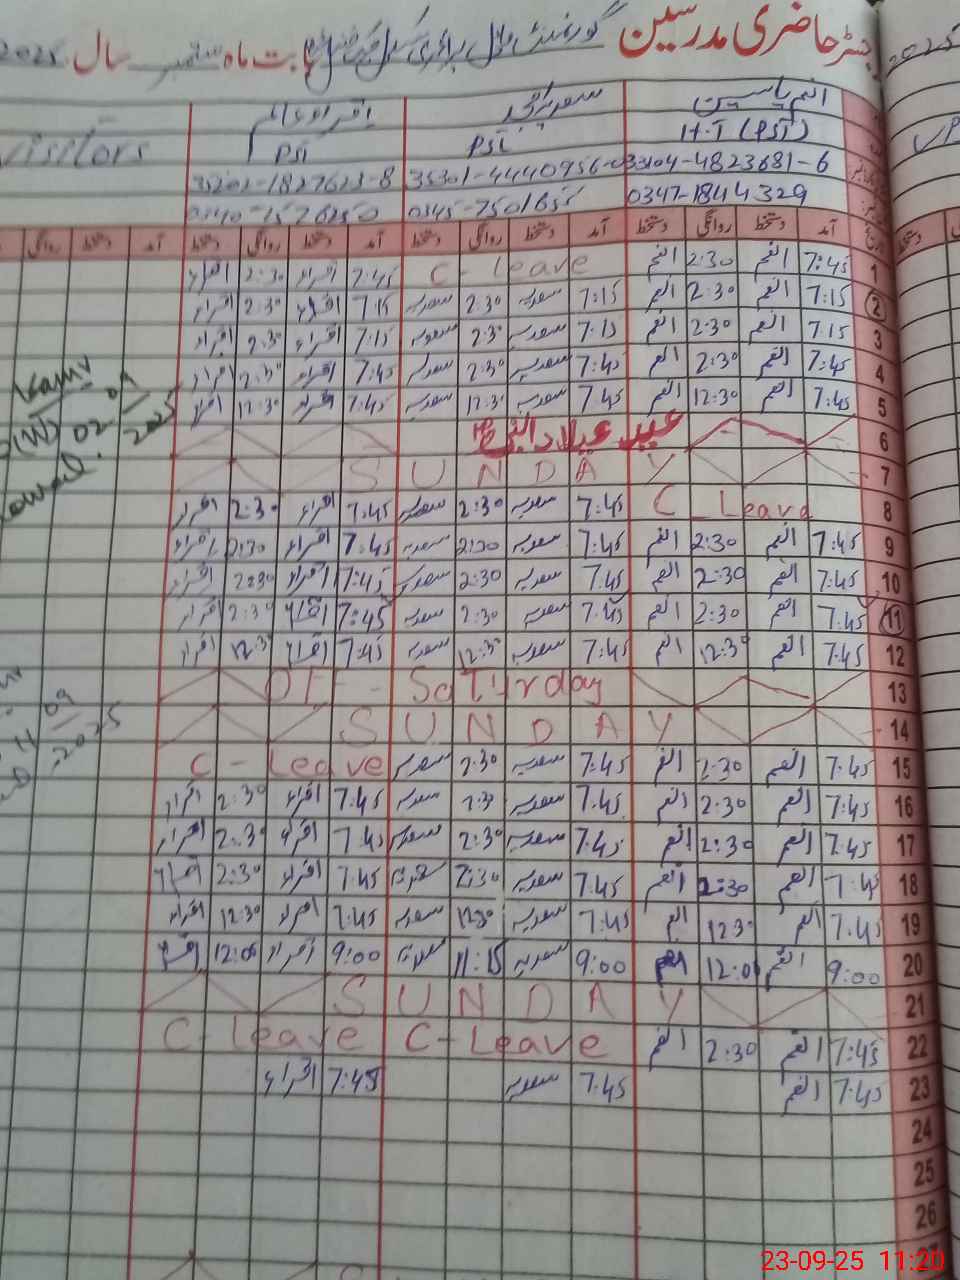 رجسٹر حاضری مدرسین گورنمنٹ ماڈل پرائمری سکول بابت ماہ ستمبر سال 2025
انعم یاسین سعدیہ اقراء Visitors
H.T (PST) PST PST
33104-4823681-6 35301-4440956-0 35202-1827623-8
0347-1844329 0345-7501655
تاریخ آمد دستخط روانگی دستخط آمد دستخط روانگی دستخط آمد دستخط روانگی دستخط آمد دستخط روانگی
1 7:45 انعم 2:30 انعم C - Leave 7:45 اقراء 2:30 اقراء
2 7:15 انعم 2:30 انعم 7:15 سعدیہ 2:30 سعدیہ 7:15 اقراء 2:30 اقراء
3 7:15 انعم 2:30 انعم 7:15 سعدیہ 2:30 سعدیہ 7:15 اقراء 2:30 اقراء
4 7:45 انعم 2:30 انعم 7:45 سعدیہ 2:30 سعدیہ 7:45 اقراء 2:30 اقراء
5 7:45 انعم 12:30 انعم 7:45 سعدیہ 12:30 سعدیہ 7:45 اقراء 12:30 اقراء
6 عید میلاد النبی ﷺ
7 SUNDAY
8 C Leave 7:45 سعدیہ 2:30 سعدیہ 7:45 اقراء 2:30 اقراء
9 7:45 انعم 2:30 انعم 7:45 سعدیہ 2:30 سعدیہ 7:45 اقراء 2:30 اقراء
10 7:45 انعم 2:30 انعم 7:45 سعدیہ 2:30 سعدیہ 7:45 اقراء 2:30 اقراء
11 7:45 انعم 2:30 انعم 7:45 سعدیہ 2:30 سعدیہ 7:45 اقراء 2:30 اقراء
12 7:45 انعم 12:30 انعم 7:45 سعدیہ 12:30 سعدیہ 7:45 اقراء 12:30 اقراء
13 OFF - Saturday
14 SUNDAY
15 7:45 انعم 2:30 انعم 7:45 سعدیہ 2:30 سعدیہ C - Leave
16 7:45 انعم 2:30 انعم 7:45 سعدیہ 2:30 سعدیہ 7:45 اقراء 2:30 اقراء
17 7:45 انعم 2:30 انعم 7:45 سعدیہ 2:30 سعدیہ 7:45 اقراء 2:30 اقراء
18 7:45 انعم 2:30 انعم 7:45 سعدیہ 2:30 سعدیہ 7:45 اقراء 2:30 اقراء
19 7:45 انعم 12:30 انعم 7:45 سعدیہ 12:30 سعدیہ 7:45 اقراء 12:30 اقراء
20 9:00 انعم 12:01 انعم 9:00 سعدیہ 11:15 سعدیہ 9:00 اقراء 12:00 اقراء
21 SUNDAY
22 7:45 انعم 2:30 انعم C - Leave C - Leave
23 7:45 انعم 7:45 سعدیہ 7:45 اقراء
24
25
26
02 09 2025
11 09 2025
2025
23-09-25 11:20